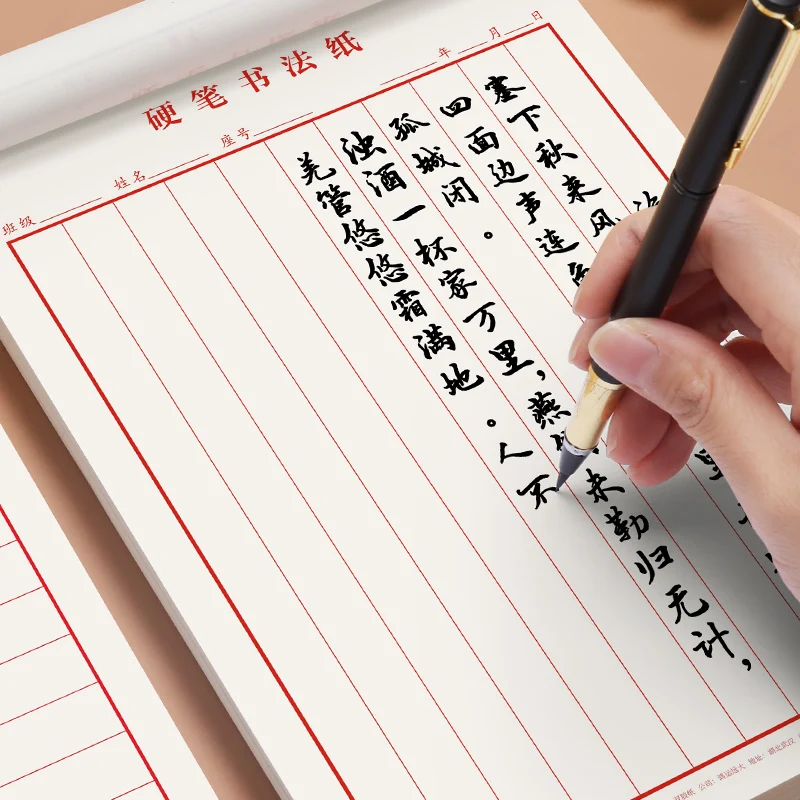 硬笔书法纸
班级 姓名 座号 年 月 日
塞下秋来风
四面边声连
孤城闭。
浊酒一杯家万里，燕未勒归无计，
羌管悠悠霜满地。人不
地址：湖北武汉